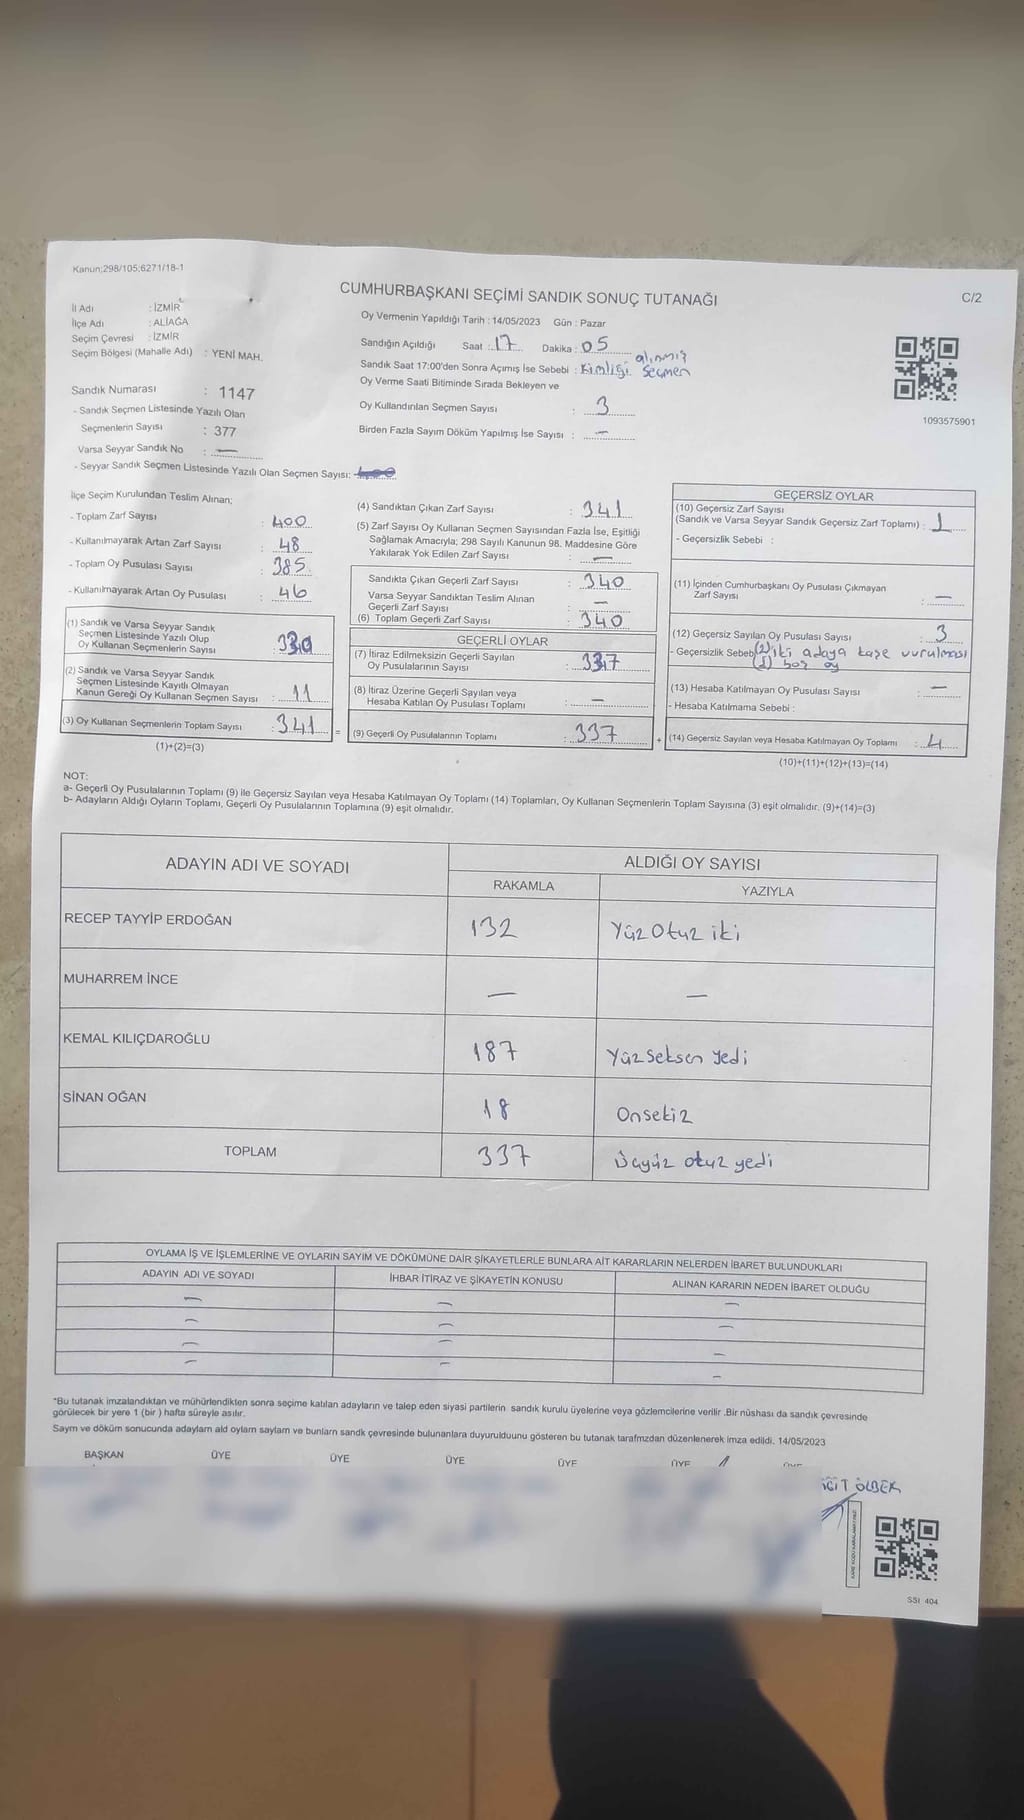 Kanun;298/105;6271/18-1
CUMHURBAŞKANI SEÇİMİ SANDIK SONUÇ TUTANAĞI
C/2
İl Adı : İZMİR
İlçe Adı : ALİAĞA
Seçim Çevresi : İZMİR
Seçim Bölgesi (Mahalle Adı) : YENİ MAH.
Oy Vermenin Yapıldığı Tarih : 14/05/2023 Gün : Pazar
Sandığın Açıldığı Saat : 17 Dakika : 05
Sandık Saat 17:00'den Sonra Açımış İse Sebebi : Kimliği alınmış Seçmen
Oy Verme Saati Bitiminde Sırada Bekleyen ve
Oy Kullandırılan Seçmen Sayısı : 3
Birden Fazla Sayım Döküm Yapılmış İse Sayısı : —
1093575901
Sandık Numarası : 1147
- Sandık Seçmen Listesinde Yazılı Olan
Seçmenlerin Sayısı : 377
Varsa Seyyar Sandık No : —
- Seyyar Sandık Seçmen Listesinde Yazılı Olan Seçmen Sayısı:
İlçe Seçim Kurulundan Teslim Alınan;
- Toplam Zarf Sayısı : 400
- Kullanılmayarak Artan Zarf Sayısı : 48
- Toplam Oy Pusulası Sayısı : 385
- Kullanılmayarak Artan Oy Pusulası : 46
(1) Sandık ve Varsa Seyyar Sandık
Seçmen Listesinde Yazılı Olup
Oy Kullanan Seçmenlerin Sayısı
(2) Sandık ve Varsa Seyyar Sandık
Seçmen Listesinde Kayıtlı Olmayan
Kanun Gereği Oy Kullanan Seçmen Sayısı : 11
(3) Oy Kullanan Seçmenlerin Toplam Sayısı : 341 =
(1)+(2)=(3)
(4) Sandıktan Çıkan Zarf Sayısı : 341
(5) Zarf Sayısı Oy Kullanan Seçmen Sayısından Fazla İse, Eşitliği
Sağlamak Amacıyla; 298 Sayılı Kanunun 98. Maddesine Göre
Yakılarak Yok Edilen Zarf Sayısı : —
Sandıkta Çıkan Geçerli Zarf Sayısı : 340
Varsa Seyyar Sandıktan Teslim Alınan
Geçerli Zarf Sayısı : —
(6) Toplam Geçerli Zarf Sayısı : 340
GEÇERLİ OYLAR
(7) İtiraz Edilmeksizin Geçerli Sayılan
Oy Pusulalarının Sayısı : 337
(8) İtiraz Üzerine Geçerli Sayılan veya
Hesaba Katılan Oy Pusulası Toplamı : —
(9) Geçerli Oy Pusulalarının Toplamı : 337 +
GEÇERSİZ OYLAR
(10) Geçersiz Zarf Sayısı
(Sandık ve Varsa Seyyar Sandık Geçersiz Zarf Toplamı) : 1
- Geçersizlik Sebebi :
(11) İçinden Cumhurbaşkanı Oy Pusulası Çıkmayan
Zarf Sayısı : —
(12) Geçersiz Sayılan Oy Pusulası Sayısı : 3
- Geçersizlik Sebeb (2) iki adaya kaşe vurulması
(1) boş oy
(13) Hesaba Katılmayan Oy Pusulası Sayısı : —
- Hesaba Katılmama Sebebi :
(14) Geçersiz Sayılan veya Hesaba Katılmayan Oy Toplamı : 4
(10)+(11)+(12)+(13)=(14)
NOT:
a- Geçerli Oy Pusulalarının Toplamı (9) ile Geçersiz Sayılan veya Hesaba Katılmayan Oy Toplamı (14) Toplamları, Oy Kullanan Seçmenlerin Toplam Sayısına (3) eşit olmalıdır. (9)+(14)=(3)
b- Adayların Aldığı Oyların Toplamı, Geçerli Oy Pusulalarının Toplamına (9) eşit olmalıdır.
ADAYIN ADI VE SOYADI
ALDIĞI OY SAYISI
RAKAMLA YAZIYLA
RECEP TAYYİP ERDOĞAN 132 Yüz Otuz iki
MUHARREM İNCE — —
KEMAL KILIÇDAROĞLU 187 Yüz Seksen Yedi
SİNAN OĞAN 18 Onsekiz
TOPLAM 337 Üçyüz otuz yedi
OYLAMA İŞ VE İŞLEMLERİNE VE OYLARIN SAYIM VE DÖKÜMÜNE DAİR ŞİKAYETLERLE BUNLARA AİT KARARLARIN NELERDEN İBARET BULUNDUKLARI
ADAYIN ADI VE SOYADI İHBAR İTİRAZ VE ŞİKAYETİN KONUSU ALINAN KARARIN NEDEN İBARET OLDUĞU
— — —
— — —
— — —
— — —
*Bu tutanak imzalandıktan ve mühürlendikten sonra seçime katılan adayların ve talep eden siyasi partilerin sandık kurulu üyelerine veya gözlemcilerine verilir .Bir nüshası da sandık çevresinde
görülecek bir yere 1 (bir ) hafta süreyle asılır.
Sayım ve döküm sonucunda adayların ald oyların sayları ve bunların sandk çevresinde bulunanlara duyurulduunu gösteren bu tutanak tarafmzdan düzenlenerek imza edildi. 14/05/2023
BAŞKAN ÜYE ÜYE ÜYE ÜYE ÜYE ÜYE
SSI 404